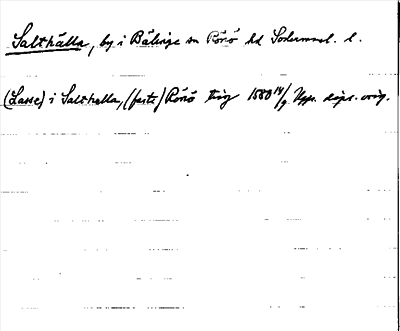 Salthälla, by i Bälinge sn Rönö hd Södermanl. l.
(Lasse) i Salthalla, (feste) Rönö ting 1580 14/9 Upps. dipl. orig.